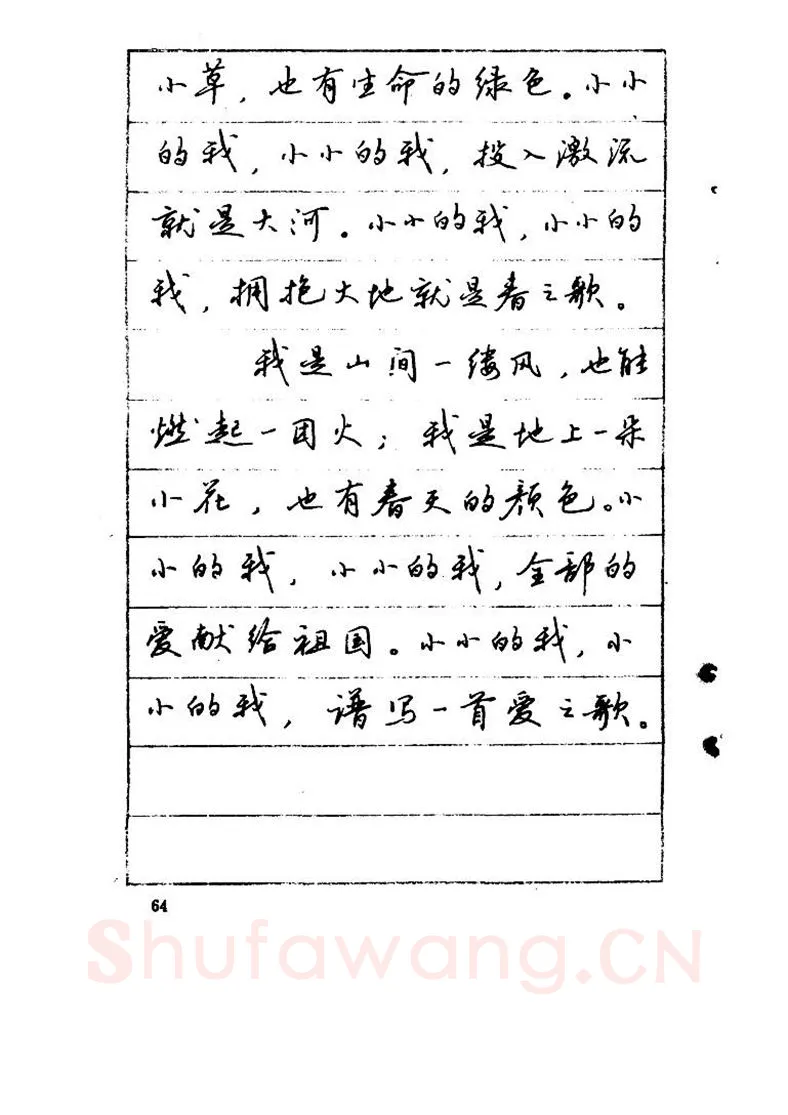 小草，也有生命的绿色。小小
的我，小小的我，投入激流
就是大河。小小的我，小小的
我，拥抱大地就是春之歌。
我是山间一缕风，也能
燃起一团火；我是地上一朵
小花，也有春天的颜色。小
小的我，小小的我，全部的
爱献给祖国。小小的我，小
小的我，谱写一首爱之歌。
64
Shufawang.CN